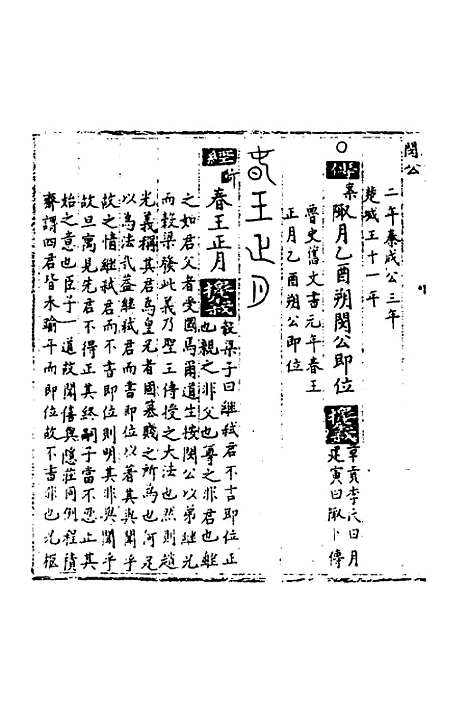 閔公
二年秦成公三年
楚成王十一年
○傳案陬月乙酉朔閔公即位摭義章貢李氏曰月
建寅曰陬卜傳
魯史舊文書元年春王
正月乙酉朔公即位
春王正月
經昕春王正月摭義穀梁子曰繼弒君不言即位正
也親之非父也尊之非君也繼
之如君父者受國焉爾道生按閔公以弟繼兄
而穀梁發此義乃聖王傳授之大法也然則趙
光義稱其君為皇兄者國墓賤之所為也何足
以為法哉蓋繼弒君而書即位以著其與聞乎
故之情繼弒君而不書即位則明其非與聞乎
故且寓見先君不得正其終嗣子當不忍正其
始之意也臣子一道故閔僖與隱莊同例程積
齋謂四君皆未踰年而即位故不書非也況樞